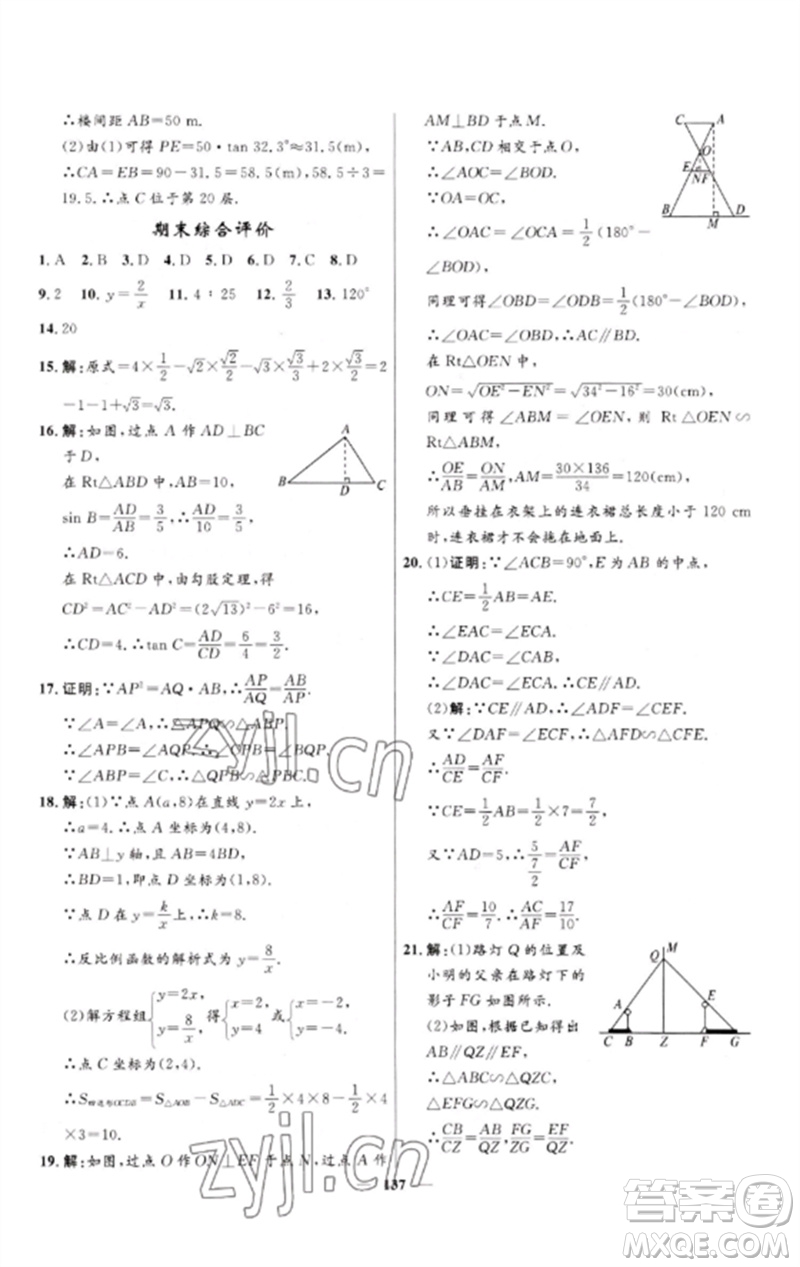 ∴楼间距 AB=50 m.
(2)由(1)可得 PE=50·tan 32.3°≈31.5(m),
∴CA=EB=90-31.5=58.5(m),58.5÷3=
19.5.∴点 C 位于第 20 层.
期末综合评价
1. A 2. B 3. D 4. D 5. D 6. D 7. C 8. D
9. 2 10. y=2/x 11. 4∶25 12. 2/3 13. 120°
14. 20
15. 解:原式=4×1/2-√2×√2/2-√3×√3/3+2×√3/2=2
-1-1+√3=√3.
16. 解:如图,过点 A 作 AD⊥BC
于 D,
在 Rt△ABD 中,AB=10,
sin B=AD/AB=3/5,∴AD/10=3/5,
∴AD=6.
在 Rt△ACD 中,由勾股定理,得
CD²=AC²-AD²=(2√13)²-6²=16,
∴CD=4.∴tan C=AD/CD=6/4=3/2.
A
B D C
17. 证明:∵AP²=AQ·AB,∴AP/AQ=AB/AP.
∵∠A=∠A,∴△APQ∽△ABP.
∴∠APB=∠AQP.∴∠BPC=∠BQP.
∵∠APB=∠C,∴△QPB∽△PCB.
18. 解:(1)∵点 A(a,8)在直线 y=2x 上,
∴a=4.∴点 A 坐标为(4,8).
∵AB⊥y 轴,且 AB=4BD,
∴BD=1,即点 D 坐标为(1,8).
∵点 D 在 y=k/x 上,∴k=8.
∴反比例函数的解析式为 y=8/x.
(2)解方程组{y=2x, y=8/x 得{x=2, y=4 或{x=-2, y=-4.
∴点 C 坐标为(2,4).
∴S四边形OCDB=S△AOB-S△ADC=1/2×4×8-1/2×4
×3=10.
19. 解:如图,过点 O 作 ON⊥EF 于点 N,过点 A 作
AM⊥BD 于点 M.
∵AB,CD 相交于点 O,
∴∠AOC=∠BOD.
∵OA=OC,
∴∠OAC=∠OCA=1/2(180°-
∠BOD),
同理可得∠OBD=∠ODB=1/2(180°-∠BOD),
∴∠OAC=∠OBD.∴AC∥BD.
在 Rt△OEN 中,
ON=√OE²-EN²=√34²-16²=30(cm),
同理可得∠ABM=∠OEN,则 Rt△OEN∽
Rt△ABM,
∴OE/AB=ON/AM,AM=30×136/34=120(cm),
所以垂挂在衣架上的连衣裙总长度小于 120 cm
时,连衣裙才不会拖在地面上.
C A
O
E NF
B M D
20. (1)证明:∵∠ACB=90°,E 为 AB 的中点,
∴CE=1/2AB=AE.
∴∠EAC=∠ECA.
∵∠DAC=∠CAB,
∴∠DAC=∠ECA,∴CE∥AD.
(2)解:∵CE∥AD,∴∠ADF=∠CEF.
又∵∠DAF=∠ECF,∴△AFD∽△CFE.
∴AD/CE=AF/CF.
∵CE=1/2AB=1/2×7=7/2,
又∵AD=5,∴5/(7/2)=AF/CF,
∴AF/CF=10/7.∴AC/AF=17/10.
21. 解:(1)路灯 Q 的位置及
小明的父亲在路灯下的
影子 FG 如图所示.
(2)如图,根据已知得出
AB∥QZ∥EF,
∴△CBA∽△CZQ,
△GEF∽△GQZ.
∴CB/CZ=AB/QZ,FG/GZ=EF/QZ,
M
Q
A E
C B Z F G
137
zyjl.cn
zyjl.cn
答案圈
MXQE.COM